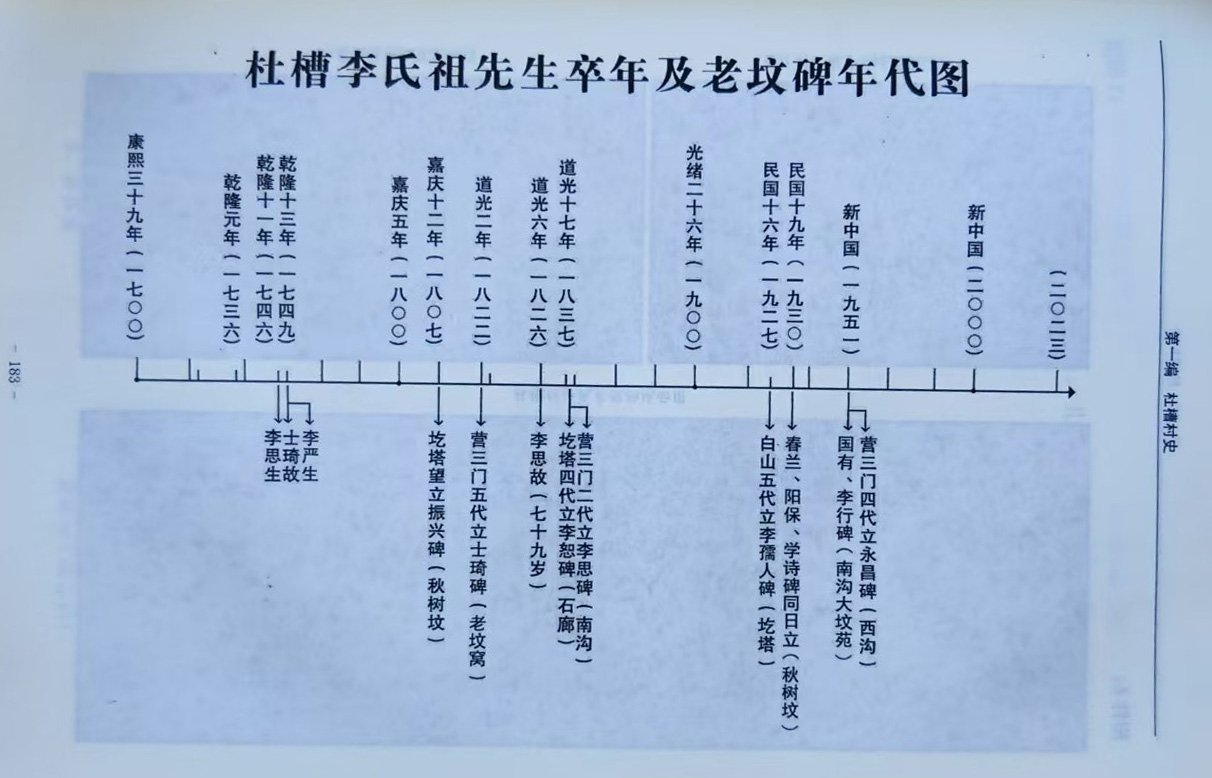 杜槽李氏祖先生卒年及老坟碑年代图
康熙三十九年（一七〇〇）
乾隆元年（一七三六）
乾隆十一年（一七四六）
乾隆十三年（一七四九）
嘉庆五年（一八〇〇）
嘉庆十二年（一八〇七）
道光二年（一八二二）
道光六年（一八二六）
道光十七年（一八三七）
光绪二十六年（一九〇〇）
民国十六年（一九二七）
民国十九年（一九三〇）
新中国（一九五一）
新中国（二〇〇〇）
（二〇二三）
李思生
士琦故
李严生
圪塔望立振兴碑（秋树坟）
营三门五代立士琦碑（老坟窝）
李思故（七十九岁）
圪塔四代立李恕碑（石廊）
营三门二代立李思碑（南沟）
白山五代立李孺人碑（圪塔）
春兰、阳保、学诗碑同日立（秋树坟）
国有、李行碑（南沟大坟苑）
营三门四代立永昌碑（西沟）
第一编 杜槽村史
- 183 -